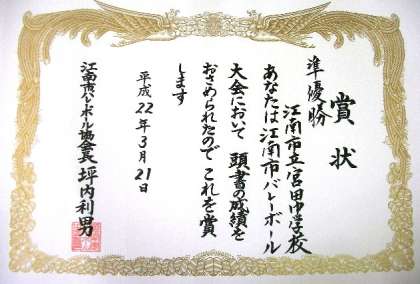 賞状
準優勝
江南市立宮田中学校
あなたは江南市バレーボール
大会において 頭書の成績を
おさめられたので これを賞
します
平成22年3月21日
江南市バレーボール協会長 坪内利男